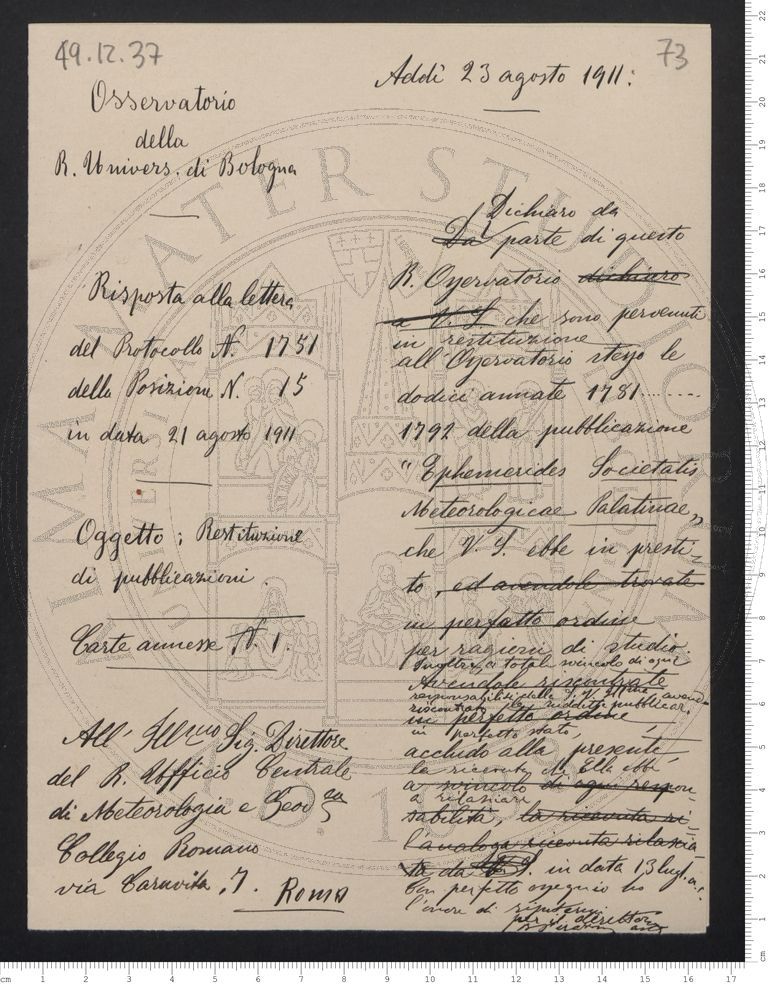 49.12.37
73
Addì 23 agosto 1911:
Osservatorio
della
R. Univers. di Bologna
Risposta alla lettera
del Protocollo N. 1751
della Posizione N. 15
in data 21 agosto 1911
Oggetto: Restituzione
di pubblicazioni.
Carte annesse N. 1.
All' Illmo Sig. Direttore
del R. Ufficio Centrale
di Meteorologia e Geodca
Collegio Romano
via Caravita, 7. Roma
Dichiaro da
Da parte di questo
R. Osservatorio dichiaro
a V. S. che sono pervenute
in restituzione
all Osservatorio stesso le
dodici annate 1781........
1792 della pubblicazione
"Ephemerides Societatis
Meteorologicae Palatinae„
che V. S. ebbe in presti-
to, ed avendole trovate
in perfetto ordine
per ragioni di studio.
a total svincolo di ogni
Avendole riscontrate
responsabilità della S. V. Illma, avend
riscontrato le suddette pubblicaz.
in perfetto ordine
in perfetto stato,
accludo alla presente,
la ricevuta che Ella ebbe
a svincolo di ogni respon-
a rilasciare
sabilità, la ricevuta ri-
l'analoga ricevuta rilascia
ta da V. S. in data 13 lugl. a. c.
Con perfetto ossequio ho
l'onore di
per il direttore
ALMA MATER STUDIORUM
A.D. 1088